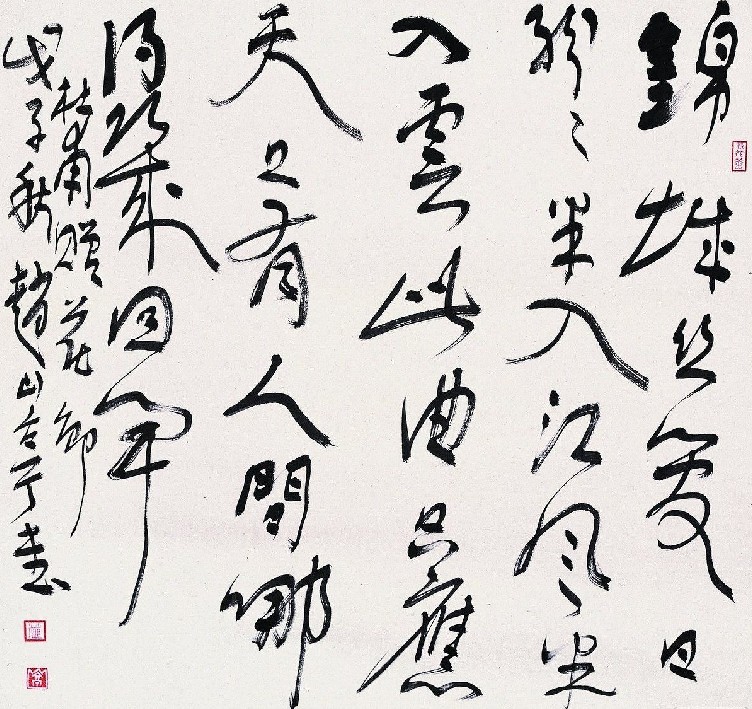 錦城丝管日
紛〻半入江風半
入雲此曲只應
天上有人間能
得幾回聞
杜甫贈花卿
戊子秋趙山亭書